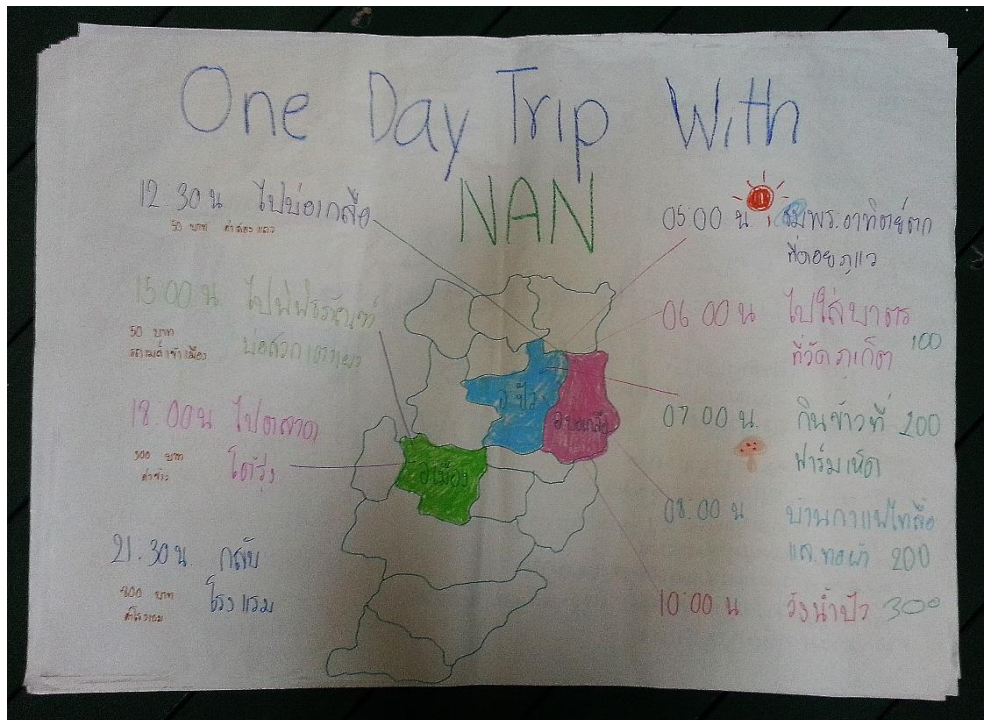 One Day Trip With
NAN
12.30 น ไปบ่อเกลือ
50 บาท
15.00 น ไปพิพิธภัณฑ์
50 บาท
บ่อสวกเตาเผา
18.00 น ไปตลาด
300 บาท
ค่าข้าว
โต้รุ่ง
21.30 น. กลับ
โรงแรม
800 บาท
ค่าโรงแรม
อ.ปัว
อ.บ่อเกลือ
อ.เมือง
05:00 น. ชมพระอาทิตย์ตก
ที่ดอยภูแว
06 00 น ไปใส่บาตร
ที่วัดภูเก็ต 100
07 00 น. กินข้าวที่ 200
ฟาร์มเห็ด
08.00 น บ้านกาแฟไทลื้อ
และทอผ้า 200
10:00 น วังน้ำปัว 300